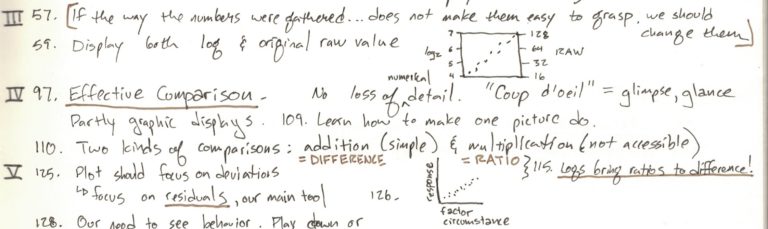 III 57. [If the way the numbers were gathered... does not make them easy to grasp, we should change them]
59. Display both log & original raw value
log2 7 6 5 4 128 64 32 16 RAW
IV 97. Effective Comparison - No loss of numerical detail. "Coup d'oeil" = glimpse, glance
Partly graphic displays. 109. Learn how to make one picture do.
110. Two kinds of comparisons: addition (simple) & multiplication (not accessible)
= DIFFERENCE = RATIO } 115. Logs bring ratios to difference!
V 125. Plot should focus on deviations
↳ focus on residuals, our main tool 126.
response factor circumstance
128. Our need to see behavior. Play down or